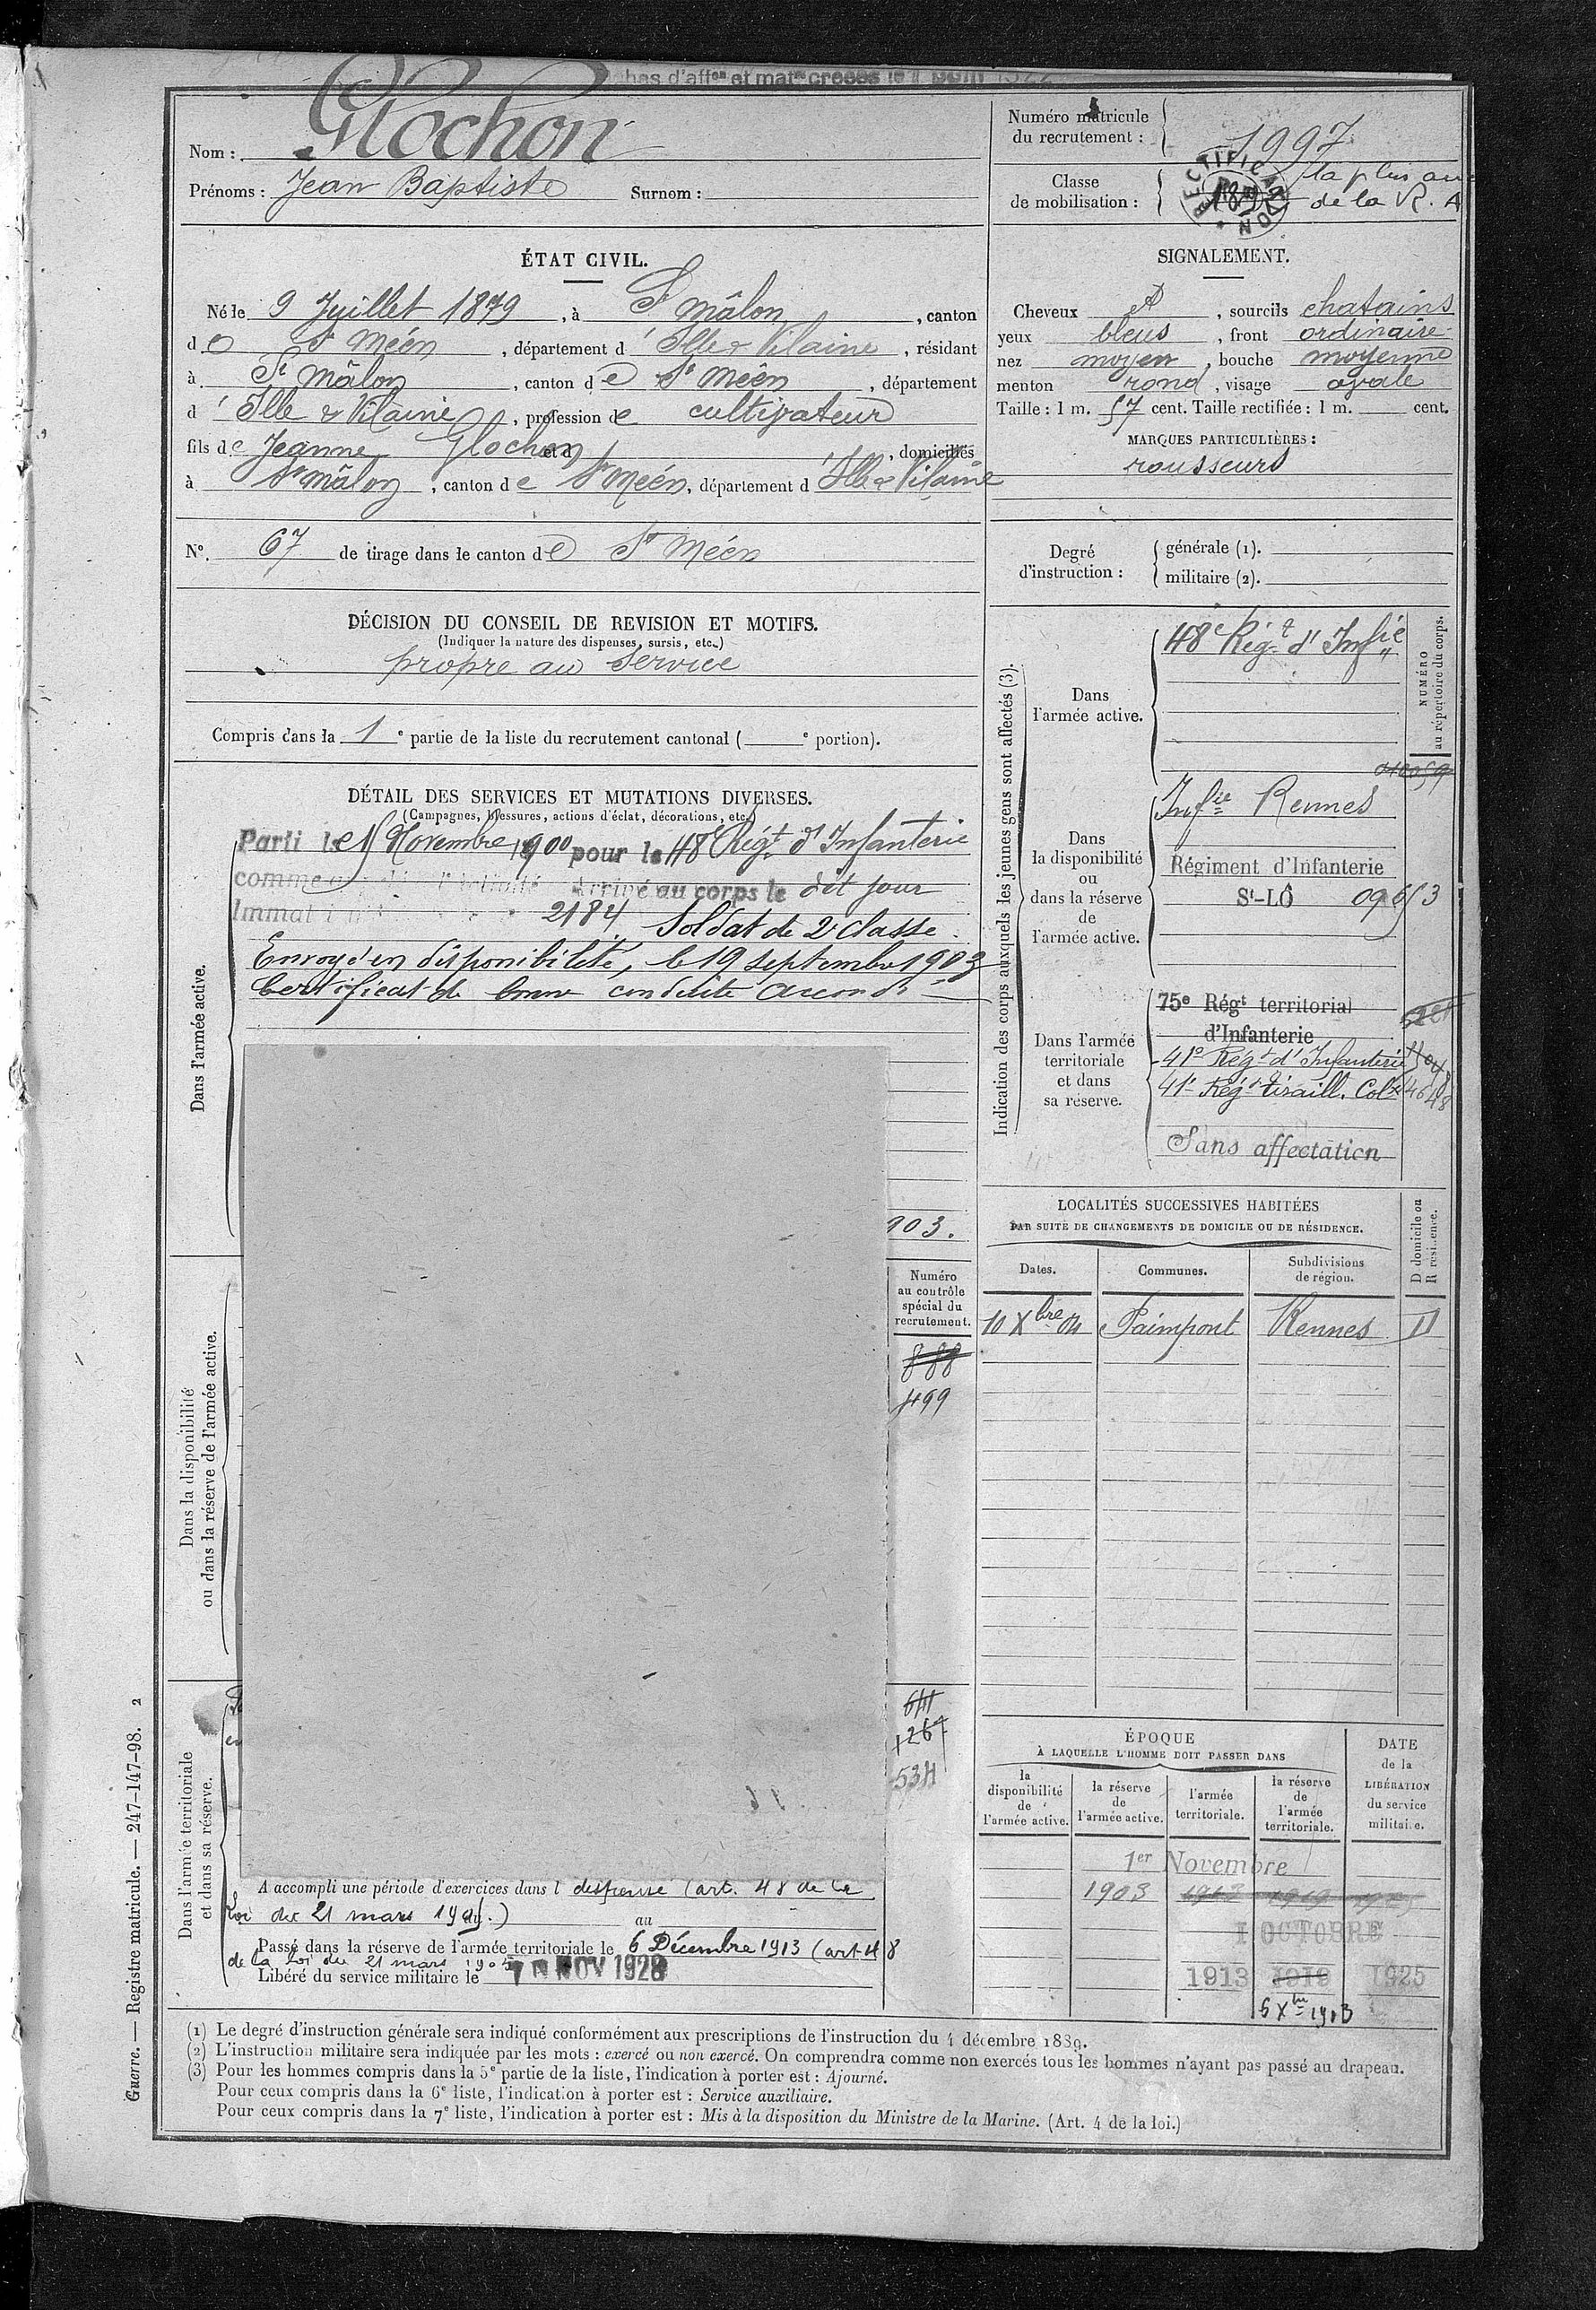 Nom : Glochon
Prénoms : Jean Baptiste Surnom :
Numéro matricule
du recrutement : 1997
Classe
de mobilisation :
RECTIFICATION
la plus anc
de la R. A
ÉTAT CIVIL.
Né le 9 Juillet 1879, à St Mâlon, canton
de St Méen, département d'Ille & Vilaine, résidant
à St Mâlon, canton de St Méen, département
d'Ille & Vilaine, profession de cultivateur
fils de Jeanne Glochon et d , domiciliés
à St Mâlon, canton de St Méen, département d'Ille & Vilaine
No. 67 de tirage dans le canton de St Méen
DÉCISION DU CONSEIL DE REVISION ET MOTIFS.
(Indiquer la nature des dispenses, sursis, etc.)
propre au service
Compris dans la 1e partie de la liste du recrutement cantonal ( e portion).
DÉTAIL DES SERVICES ET MUTATIONS DIVERSES.
(Campagnes, blessures, actions d'éclat, décorations, etc.)
Dans l'armée active.
Parti le Novembre 1900 pour le 48e Régt d'Infanterie
Arrivé au corps le dit jour
2184 Soldat de 2e classe.
Envoyé en disponibilité, le 19 septembre 1903
Certificat de bonne conduite accordé
903.
Dans la disponibilité
ou dans la réserve de l'armée active.
Numéro
au contrôle
spécial du
recrutement.
888
499
Dans l'armée territoriale
et dans sa réserve.
1267
534
A accompli une période d'exercices dans l dispensé (art. 48 de la
Loi du 21 mars 1905.)
au
Passé dans la réserve de l'armée territoriale le 6 Décembre 1913 (art 48
de la Loi du 21 mars 1905
Libéré du service militaire le 10 NOV 1928
SIGNALEMENT.
Cheveux et, sourcils chatains
yeux bleus, front ordinaire
nez moyen, bouche moyenne
menton rond, visage ovale
Taille : 1 m. 57 cent. Taille rectifiée : 1 m. cent.
MARQUES PARTICULIÈRES :
rousseurs
Degré
d'instruction :
générale (1).
militaire (2).
Indication des corps auxquels les jeunes gens sont affectés (3).
NUMÉRO
au répertoire du corps.
Dans
l'armée active.
48e Régt d'Infie
Dans
la disponibilité
ou
dans la réserve
de
l'armée active.
Infie Rennes
Régiment d'Infanterie
St-LÔ 09653
Dans l'armée
territoriale
et dans
sa réserve.
75e Régt territorial
d'Infanterie
41e Régt d'Infanterie
41e Régt tiraill. Colx
Sans affectation
LOCALITÉS SUCCESSIVES HABITÉES
PAR SUITE DE CHANGEMENTS DE DOMICILE OU DE RÉSIDENCE.
D domicile ou
R résidence.
Dates. Communes. Subdivisions
de région.
10 Xbre 04 Paimpont Rennes D
ÉPOQUE
À LAQUELLE L'HOMME DOIT PASSER DANS
la
disponibilité
de
l'armée active.
la réserve
de
l'armée active.
l'armée
territoriale.
la réserve
de
l'armée
territoriale.
DATE
de la
LIBÉRATION
du service
militaire.
1er Novembre
1903 1913 1919 1925
1 OCTOBRE
1913 1919 1925
6 Xbre 1913
(1) Le degré d'instruction générale sera indiqué conformément aux prescriptions de l'instruction du 4 décembre 1889.
(2) L'instruction militaire sera indiquée par les mots : exercé ou non exercé. On comprendra comme non exercés tous les hommes n'ayant pas passé au drapeau.
(3) Pour les hommes compris dans la 5e partie de la liste, l'indication à porter est : Ajourné.
Pour ceux compris dans la 6e liste, l'indication à porter est : Service auxiliaire.
Pour ceux compris dans la 7e liste, l'indication à porter est : Mis à la disposition du Ministre de la Marine. (Art. 4 de la loi.)
Guerre. — Registre matricule. — 247-147-98. 2